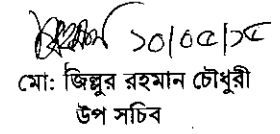 ১০/০৫/১৫
মো: জিল্লুর রহমান চৌধুরী
উপ সচিব